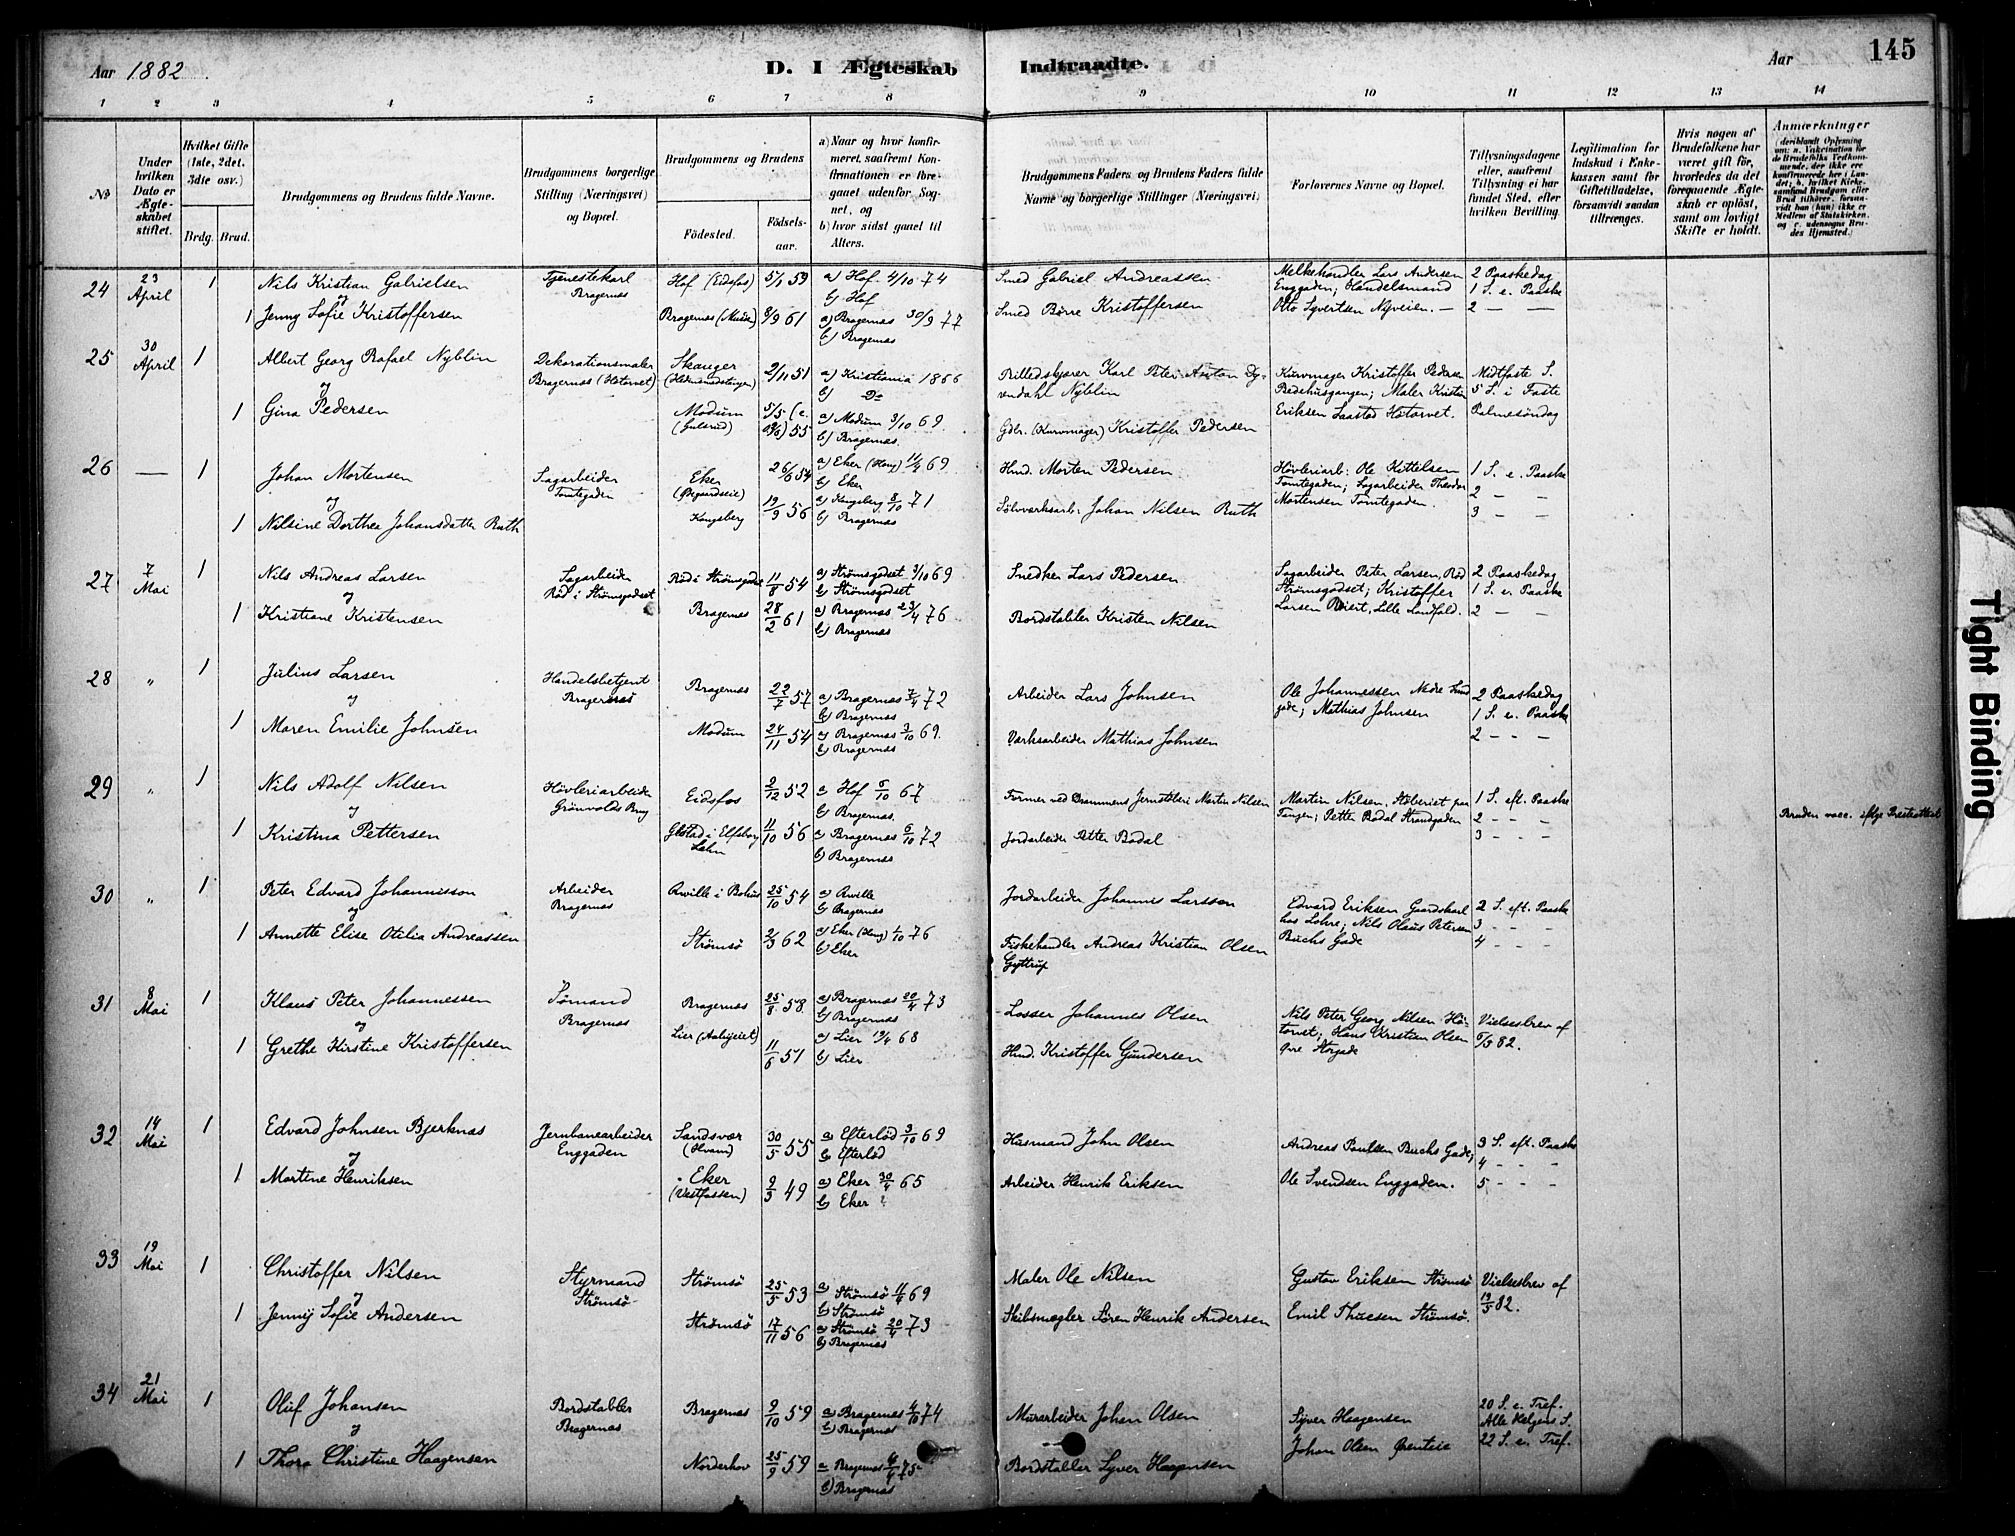 Aar 1882.
D. I Ægteskab Indtraadte.
Aar
145
1 2 3 4 5 6 7 8 9 10 11 12 13 14
No
Under hvilken Dato er Ægteskabet stiftet.
Hvilket Gifte (1ste, 2det, 3die osv.)
Brdg. Brud.
Brudgommens og Brudens fulde Navne.
Brudgommens borgerlige Stilling (Næringsvei) og Bopæl.
Brudgommens og Brudens
Födested.
Födselsaar.
a) Naar og hvor konfirmeret, saafremt Konfirmationen er foregaaet udenfor Sognet, og
b) hvor sidst gaaet til Alters.
Brudgommens Faders og Brudens Faders fulde Navne og borgerlige Stillinger (Næringsvei)
Forlovernes Navne og Bopæl.
Tillysningsdagene eller, saafremt Tillysning ei har fundet Sted, efter hvilken Bevilling.
Legitimation for Indskud i Enkekassen samt for Giftetilladelse, forsaavidt saadan tiltrænges.
Hvis nogen af Brudefolkene har været gift för, hvorledes da det foregaaende Ægteskab er oplöst, samt om lovligt Skifte er holdt.
Anmærkninger
24 23 April 1 Nils Kristian Gabrielsen Tjenestekarl Bragernæs Hof (Eidsfos) 5/1 59 a) Hof 4/10 74 b) Hof Smed Gabriel Andreassen Melkehandler Lars Andersen Enggaden; Handelsmand 2 Paaskedag 1 S. e. Paaske
og
1 Jenny Sofie Kristoffersen Bragernæs 8/9 61 a) Bragernæs 30/9 77 b) Bragernæs Smed Børre Kristoffersen Otto Syvertsen Nyveien. 2 — —
25 30 April 1 Albert Georg Rafael Nyblin Dekorationsmaler Bragernæs (Høtorvet) Skauger 2/11 51 a) Kristiania 1866 b) Do Karl Peter Anton Dyvendahl Nyblin Kurvmager Kristoffer Pedersen Bedehusgangen; Maler Kristian Midtfaste S. 5 S. i Faste
og
1 Gina Pedersen Modum (Gulsrud) 55 a) Modum 3/10 69 b) Bragernæs. Gdbr. (Kurvmager) Kristoffer Pedersen Eriksen Saastad Høtorvet. Palmesöndag
26 — 1 Johan Mortensen Sagarbeider Tomtegaden Eker 26/6 54 a) Eker (Haug) 11/4 69 b) Eker Hmd. Morten Pedersen Høvleriarb: Ole Kittelsen Tomtegaden; Sagarbeider Theodor 1 S. e. Paaske 2 — —
og
1 Nilsine Dorthea Johansdatter Ruth Kongsberg 19/9 56 a) Kongsberg 8/10 71 b) Bragernæs Sølvværksarb: Johan Nilsen Ruth Mortensen Tomtegaden. 3 — —
27 7 Mai 1 Nils Andreas Larsen Sagarbeider Röd i Strømsgodset Röd i Strømsgodset 11/8 54 a) Strømsgodset 3/10 69 b) Strømsgodset Snedker Lars Pedersen Sagarbeider Peter Larsen, Röd Strømsgodset; Kristoffer 2 Paaskedag 1 S. e. Paaske
og
1 Kristiane Kristensen Bragernæs 28/2 61 a) Bragernæs 23/4 76 b) Bragernæs Bordstabler Kristen Nilsen Larsen, Lille Landfald. 2 — —
28 „ 1 Julius Larsen Handelsbetjent Bragernæs Bragernæs 22/7 57 a) Bragernæs 7/4 72 b) Bragernæs Arbeider Lars Johnsen Ole Johannessen Nedre Sund gade; Mathias Johnsen 2 Paaskedag 1 S. e. Paaske
og
1 Maren Emilie Johnsen Modum 24/11 54 a) Bragernæs 3/10 69. b) Bragernæs Værksarbeider Mathias Johnsen 2 — —
29 „ 1 Nils Adolf Nilsen Høvleriarbeider Grønvolds Brug Eidsfos 2/12 52 a) Hof 6/10 67 b) Bragernæs. Former ved Drammens Jernstøberi Martin Nilsen Martin Nilsen, Støberiet paa Tangen; Petter Bodal Strandgaden 1 S. eft. Paaske 2 - - -
og
1 Kristina Pettersen 11/10 56 a) Bragernæs 6/10 72 b) Bragernæs Jordarbeider Petter Bodal 3 - - - Bruden vacc. ifølge Presteattest
30 „ 1 Peter Edvard Johannisson Arbeider Bragernæs i Bohus 25/10 54 b) Bragernæs Jordarbeider Johannis Larsson Edvard Eriksen Gaardskarl hos Lohre; Nils Olaus Petersen 2 S. eft. Paaske 3 - - -
og
1 Annette Elise Otilia Andreassen Strømsö 2/3 62 a) Eker (Haug) 1/10 76 b) Eker Fiskehandler Andreas Kristian Olsen Gyttrup Buchs Gade 4 - - -
31 8 Mai 1 Klaus Peter Johannessen Sømand Bragernæs Bragernæs 25/8 58 a) Bragernæs 20/4 73 b) Bragernæs Losser Johannes Olsen Nils Peter Georg Nilsen Høtorvet; Hans Kristian Olsen Vielsesbrev af 6/5 82.
og
1 Grethe Kirstine Kristoffersen Lier 11/6 51 a) Lier 19/4 68 b) Lier Hmd. Kristoffer Gundersen Øvre Storgade
32 14 Mai 1 Edvard Johnsen Bjerknæs Jernbanearbeider Enggaden Sandsvær (Hvam) 30/5 55 a) Efterlöd 3/10 69 b) Efterlöd Husmand John Olsen Andreas Paulsen Buchs Gade; 3 S. eft. Paaske 4 - - -
og
1 Martine Henriksen Eker (Vestfossen) 9/3 49 a) Eker 30/4 65 b) Eker Arbeider Henrik Eriksen Ole Svendsen Enggaden. 5 - - -
33 19 Mai 1 Christoffer Nilsen Styrmand Strømsø Strømsö 25/5 53 a) Strømsö 11/4 69 b) Strømsö Maler Ole Nilsen Gustav Eriksen Strømsö Vielsesbrev af 19/5 82.
og
1 Jenny Sofie Andersen Strømsö 17/11 56 a) Strømsö 20/4 73 b) Bragernæs Skibsmægler Sören Henrik Andersen Emil Thuesen Strømsö.
34 21 Mai 1 Oluf Johansen Bordstabler Bragernæs Bragernæs 9/10 59 a) Bragernæs 4/10 74 b) Bragernæs Murarbeider Johan Olsen Syver Haagensen 20 S. e. Tref. Alle Helgens S.
og
1 Thora Christine Haagensen Norderhov 25/9 59 a) Bragernæs 75 b) Bragernæs Bordstabler Syver Haagensen Johan Olsen 22 S. e. Tref.
Tight Binding